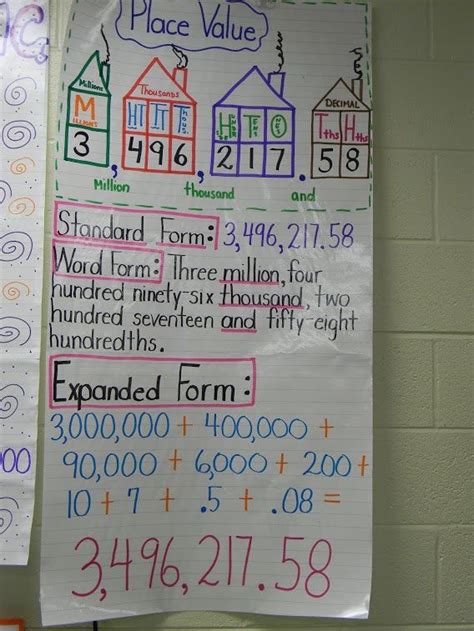 Place Value
Millions
Thousands
DECIMAL
M HT TT T H T O Tths Hths
3, 496, 217.58
Million thousand and
Standard Form: 3,496,217.58
Word Form: Three million, four
hundred ninety-six thousand, two
hundred seventeen and fifty-eight
hundredths.
Expanded Form:
3,000,000 + 400,000 +
90,000 + 6,000 + 200 +
10 + 7 + .5 + .08 =
3,496,217.58
00